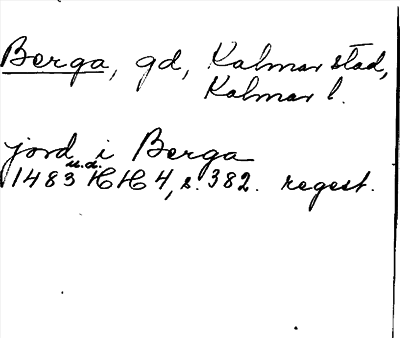 Berga, gd, Kalmar stad,
Kalmar l.
jord i Berga
1483 u.d. HH 4, s. 382. regest.